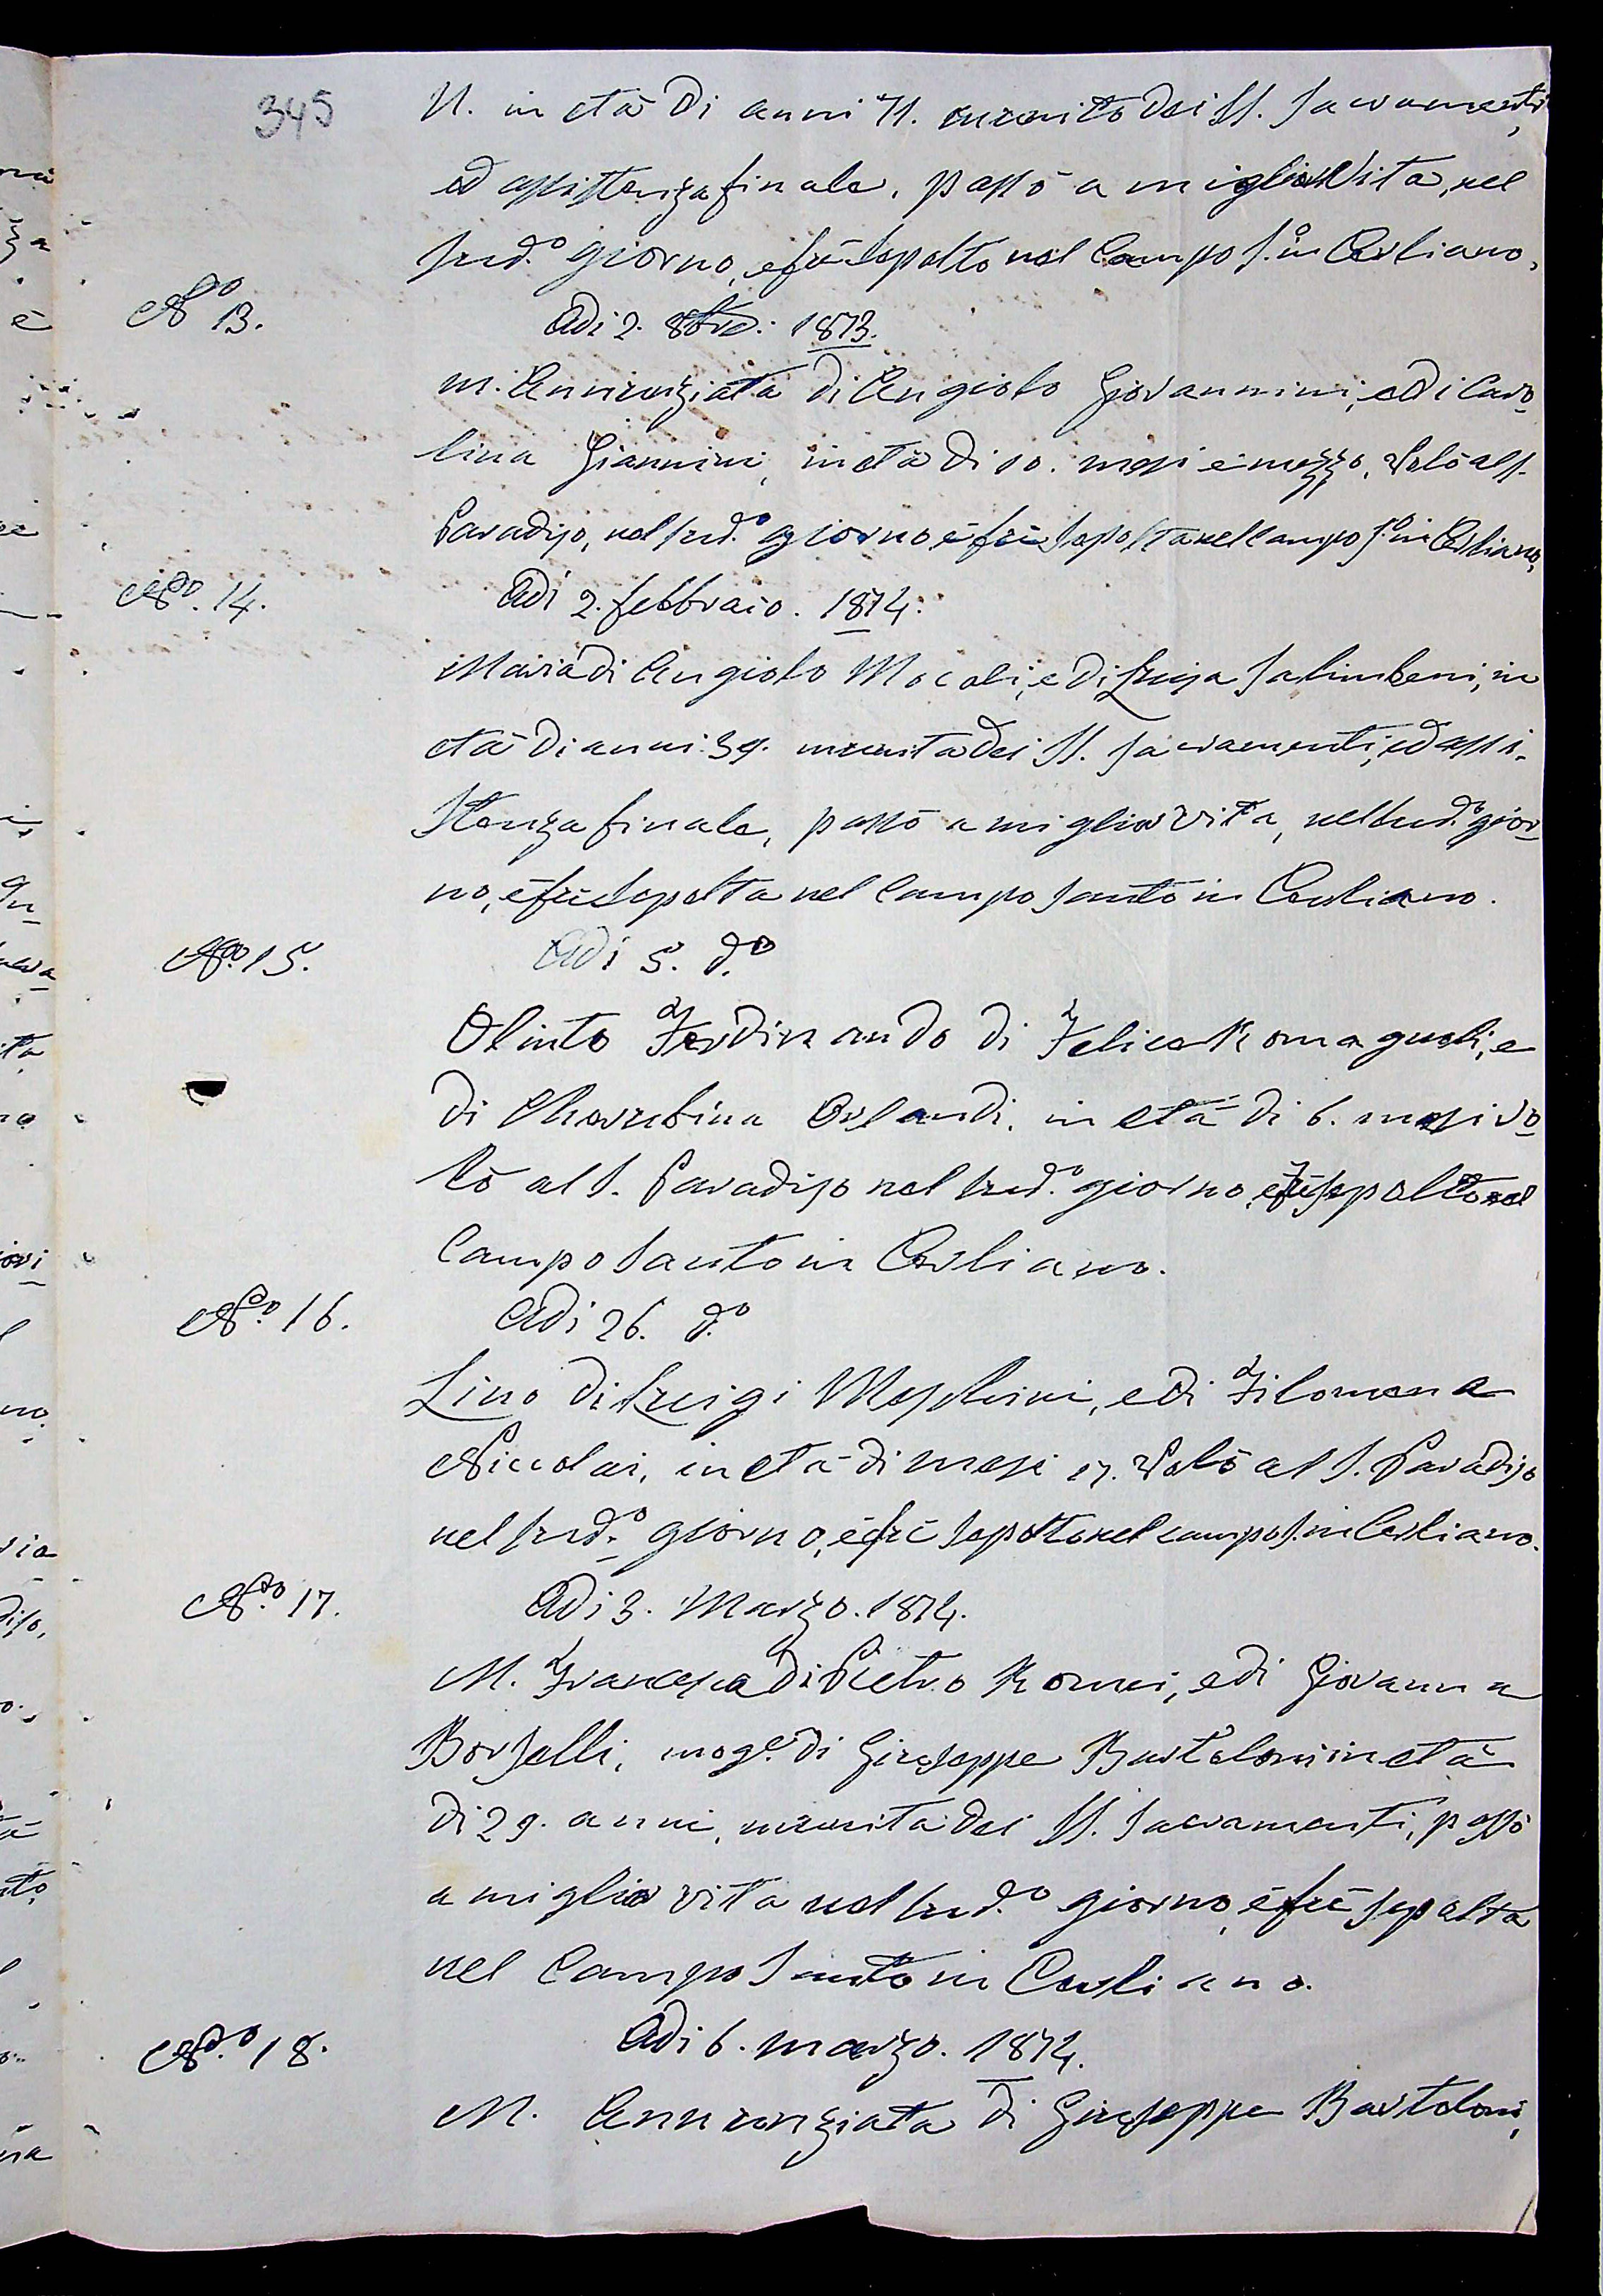 345
N. in età di anni 71. munito dei SS. Sacramenti,
ed assistenza finale, passò a miglior Vita, nel
sud.º giorno, e fù sepolto nel Campo S.º in Cerliano,
Nº 13.
Adi 2. 8bre: 1873.
M. Annunziata di Angiolo Giovannini, e di Caro
lina Giannini, in età di 10. mesi e mezzo, Volò al S.
Paradiso, nel sud.º giorno e fù sepolta nel Campo S.º in Cerliano,
Nº. 14.
Adi 2. febbraio. 1874.
Maria di Angiolo Mocali, e di Luisa Salimbeni, in
età di anni 39. munita dei SS. Sacramenti, ed assi-
stenza finale, passò a miglior vita, nel sud.º gior
no, e fù sepolta nel Campo santo in Cerliano.
Nº. 15.
Adi 5. d.º
Olinto Ferdinando di Felice Romagnoli, e
di Cherubina Orlandi, in età di 6. mesi vo
lò al S. Paradiso nel sud.º giorno, e fù sepolto nel
Campo Santo in Cerliano.
Nº. 16.
Adi 26. d.º
Lino di Luigi Meschini, e di Filomena
Niccolai, in età di mesi 17. Volò al S. Paradiso
nel sud.º giorno, e fù sepolto nel campo S. in Cerliano.
Nº. 17.
Adi 3. Marzo. 1874.
M. Francesca di Pietro Romei, e di Giovanna
Borselli, mog.e di Giuseppe Bartoloni in età
di 29. anni, munita dei SS. Sacramenti, passò
a miglior vita nel sud.º giorno, e fù sepolta
nel Campo Santo in Cerliano.
Nº. 18.
Adi 6. marzo. 1874.
M. Annunziata di Giuseppe Bartoloni,